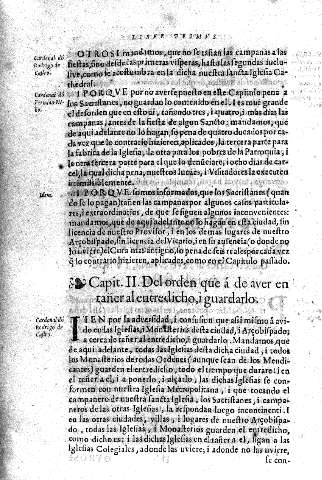 LIBER PRIMUS
Cardenal dõ Rodrigo de Castro.
OTROSI mandamos, que no se tañan las campanas a las
fiestas, sino desde las primeras visperas, hasta las segundas inclu-
sive, como se acostumbra en la dicha nuestra sancta Iglesia Ca-
thedral.
Cardenal dõ Fernãdo Ni-ño.
I PORQVE por no aver puesto en este Capitulo pena a
los Sacristanes, no guardan lo contenido en el. I es mui grande
el desorden que en esto ai, tañendo tres, i quatro, i mas dias las
campanas, antes de la fiesta de algun Sancto; mandamos, que
de aqui adelante no lo hagan, so pena de quatro ducados por ca-
da vez que lo contrario hizieren, aplicados, la tercera parte para
la fabrica de la Iglesia, la otra para los pobres de la Parroquia, i
la otra tercera parte para el que lo denunciare, i ocho dias de car-
cel, la qual dicha pena, nuestros Iuezes, i Visitadores la executen
irremissiblemente.
Idem.
I PORQVE somos informados, que los Sacristanes (quan-
do se lo pagan) tañen las campanas por algunos casos particula-
res, i extraordinarios, de que se siguen algunos inconvenientes:
mandamos, que de aqui adelante no lo hagan en esta ciudad, sin
licencia de nuestro Provisor, i en los demas lugares de nuestro
Arçobispado, sin licencia del Vicario, i en su ausencia, o donde no
lo uviere, del Cura mas antiguo, so pena de seis reales por cada vez
q̃ lo contrario hizieren, aplicados, como en el Capitulo passado.
Capit. II. Del orden que â de aver en
tañer al entredicho, i guardarlo.
Cardenal dõ Rodrigo de Castro.
ITEN por la adversidad, i confusion que assi mismo â avi-
do en las Iglesias, i Monasterios desta ciudad, i Arçobispado,
a cerca de tañer al entredicho, i guardarlo. Mandamos, que
de aqui adelante, todas las Iglesias desta dicha ciudad, i todos
los Monasterios de todas Ordenes (aunque sean de los Mendi-
cantes) guarden el entredicho, todo el tiempo que durare: i en
el tañer a el, i a ponerlo, i alçarlo, las dichas Iglesias se con-
formen con nuestra sancta Iglesia Metropolitana, i que tocando el
campanero de nuestra sancta Iglesia, los Sacristanes, i campa-
neros de las otras Iglesias, la respondan luego incontinenti. I
en las otras ciudades, villas, i lugares de nuestro Arçobispa-
do, todas las Iglesias, i Monasterios guarden el entredicho,
como dicho es; i las dichas Iglesias en el tañer a el, sigan a las
Iglesias Colegiales, adonde las uviere; i adonde no las uviere,
se con-